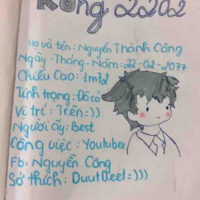 Rồng 2202
Họ và tên: Nguyễn Thành Công
Ngày-Tháng-Năm: 22-02-2077
Chiều Cao: 1m12
Tình trạng: Đã có
Vị trí: Trên:))
Người ấy: Best
Công việc: Youtuber
Fb: Nguyễn Công
Sở thích: DuutDeet=)))